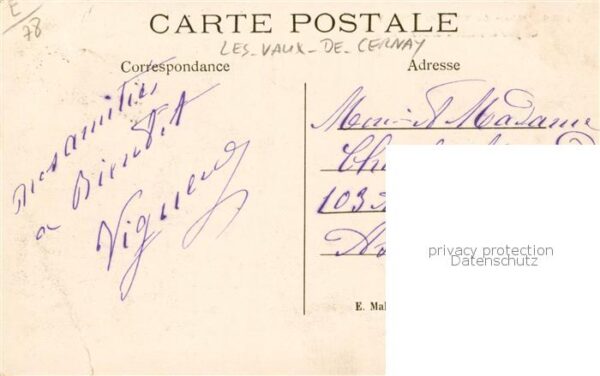 E
78
CARTE POSTALE
LES-VAUX-DE-CERNAY
Correspondance
Adresse
mes amitiés
a Bientôt
Vigneron
Monst Madame
Ch
103
privacy protection
Datenschutz
E. Mal